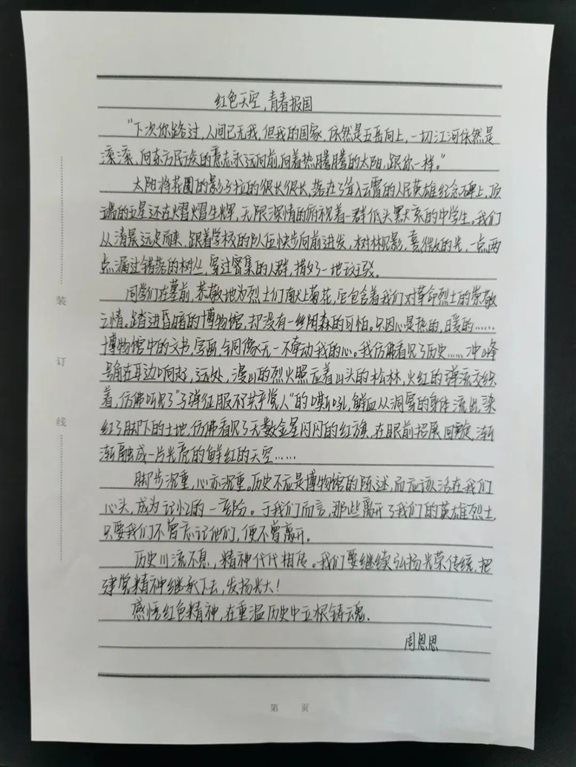 红色天空,青春报国
"下次你路过,人间已无我,但我的国家 依然是五岳向上,一切江河依然是
滚滚,向东方民族的意志永远向前,向着热腾腾的太阳,跟你一样。"
太阳将花圈的影子拉的很长很长,落在了耸入云霄的人民英雄纪念碑上,顶
端的五星还在熠熠生辉,无限深情的俯视着一群低头默哀的中学生。我们
从清晨远处而来,跟着学校的队伍快步向前进发,树林阴影,熹微的光,一点两
点漏过错落的树丛,穿过密集的人群,捎好一地
同学们在墓前,恭敬地为烈士们献上菊花,它包含着我们对革命烈士的崇敬
之情,踏进昏暗的博物馆,却没有一丝阴森的可怕。只因心是热的,日暖的……
博物馆中的文书,字画,铜像无一不牵动我的心。我仿佛看见了历史……冲峰
号角在耳边响起,远处,漫山的烈火照应着山头的松林,火红的弹流交织
着,仿佛听见了"子弹征服不了共产党人"的嘶吼,鲜血从洞穿的身体流出,染
红了脚下的土地,仿佛看见了无数金星闪闪的红旗,在眼前招展,回旋,渐
渐融成一片光亮的鲜红的天空……
脚步沉重,心亦沉重。历史不应是博物馆的陈迹,而应该活在我们
心头,成为记忆的一部份。于我们而言,那些离开了我们的英雄烈士,
只要我们不曾忘记他们,便不曾离开。
历史川流不息,精神代代相传。我们要继续弘扬光荣传统,把
建党精神继承下去,发扬光大!
感悟红色精神,在重温历史中立根铸魂.
周恩恩
装
订
线
第 页